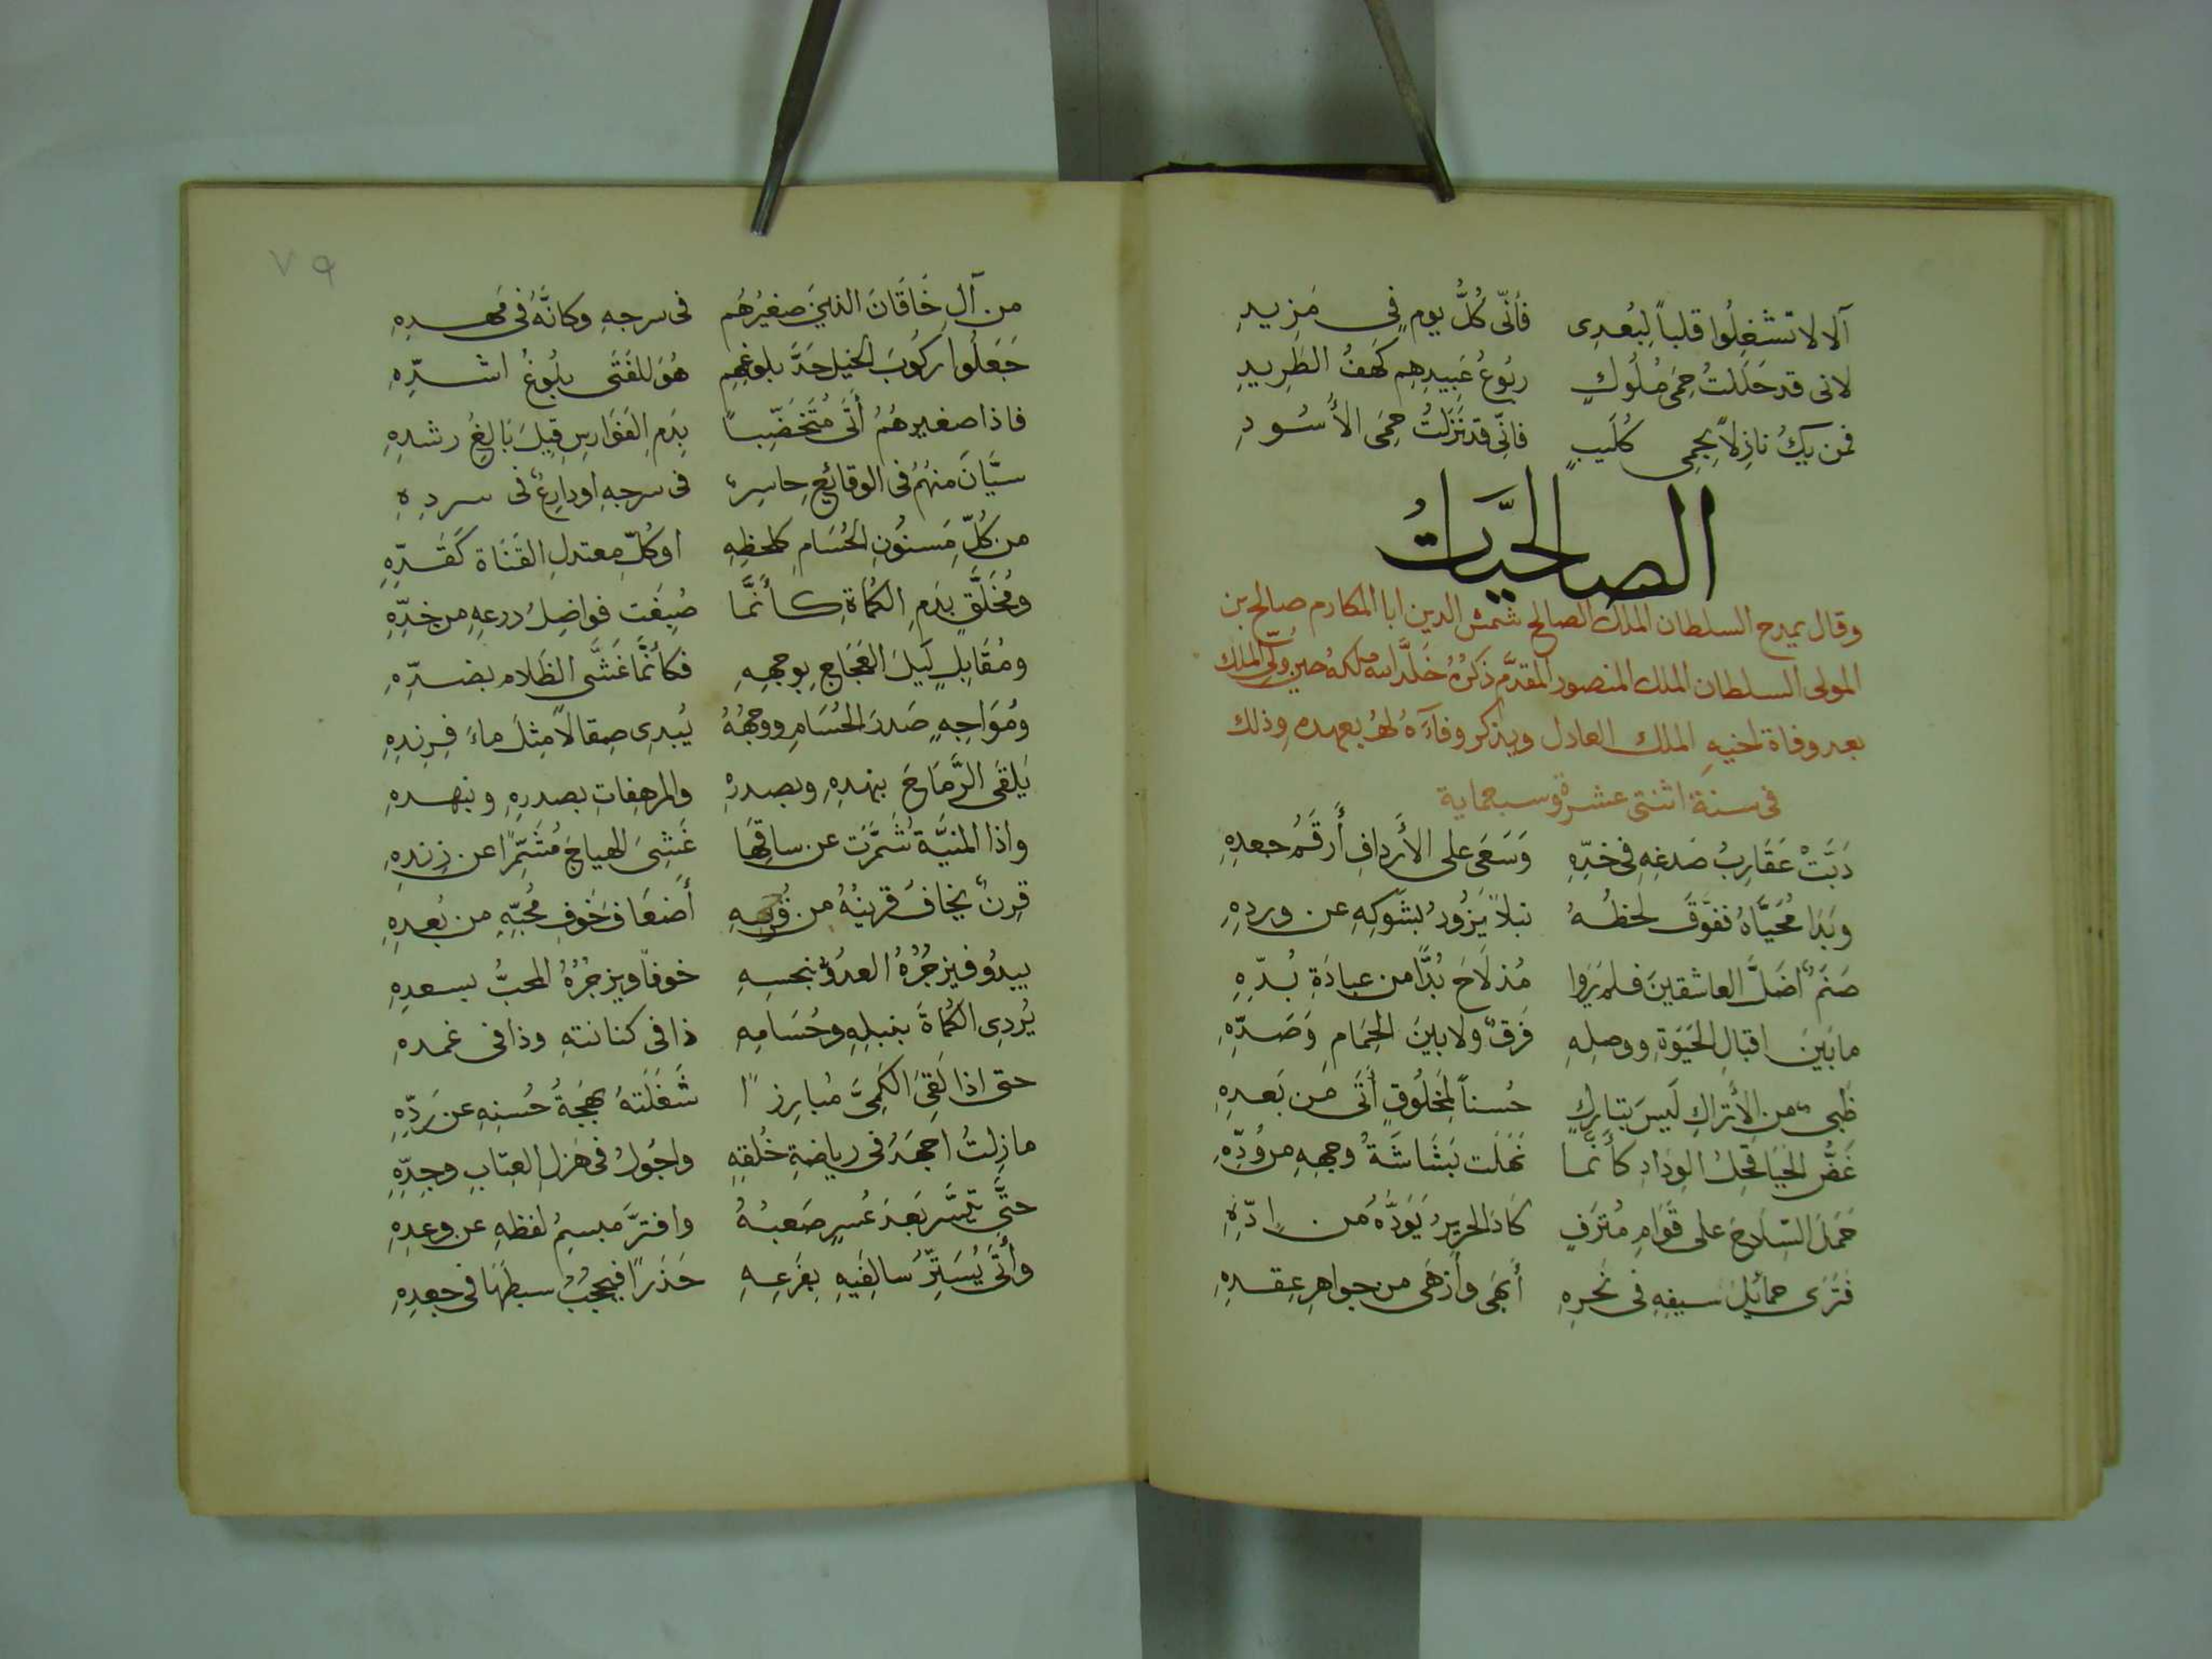 آلا لا تشغِلُوا قلباً لِبُعدِى فأنّى كُلَّ يومٍ فِى مَزِيدِ
لانى قد حَلَلتُ حِمَى مُلُوكٍ ربُوعُ عَبِيدِهِم كَهفُ الطَرِيدِ
فمن يكُ نازِلاً بِحِمِى كُلَيبٍ فانّى قد نَزَلتُ حِمَى الأَسُودِ
الصالحيَّاتُ
وقال يمدح السلطان الملك الصالح شمس الدين ابا المكارم صالح بن
المولى السلطان الملك المنصور المقدَّم ذكرُهُ خَلَّد الله ملكهُ حين وُلّى الملك
بعد وفاة اخيهِ الملك العادل ويذكر وفآءَهُ لهُ بعهده وذلك
فى سنة اثنتى عشرة وسبعماية
دَبَّتْ عَقَارِبُ صَدغِهِ فِى خدِّهِ وَسَعَى على الأَردافِ أَرقَمُ جعدِهِ
وبَدَا مُحَيَّاهُ ففَوَّقَ لَحظُهُ نبلاً يَزُودُ بشَوكِهِ عن وردِهِ
صَنَمٌ أضَلَّ العاشقينَ فلم يَرَوا مُذ لَاحَ بُدًّا من عبادَةِ بُدِّهِ
ما بَينَ اقبالِ الحَيَوةِ ووصلِهِ فَرقٌ ولا بينَ الحِمَامِ وَصَدِّهِ
ظَبىٌ من الأَتراكِ لَيسَ بتارِكٍ حُسناً لِمَخلُوقٍ أَتَى مَن بَعدِهِ
غَضُّ الحَيَا قحِلُ الوِدَادِ كأَنَّما نَهلَت بَشَاشَةُ وجههِ من وُدِّهِ
حَمَلَ السّلَاحَ على قَوَامٍ مُترَفٍ كَادَ الحريرُ يَؤدُّهُ من إدِّهِ
فَتَرَى حمائلَ سيفِهِ فى نَحرِهِ أَبهَى وأَزهَى من جواهِرِ عِقدِهِ
٧٩
من آلِ خَاقَانَ الذينَ صغيرُهُم فى سرجِهِ وكانَّهُ فى مَهدِهِ
جَعَلُوا ركُوبَ الخيل حَدَّ بلوغِهِم هُوَ للفَتَى بلُوغُ اشدِّهِ
فاذا صغيرهُمُ أَتَى مُتَخَضِّباً بِدَمِ الفَوَارِسِ قِيلَ بَالِغُ رشدِهِ
سيَّانَ منهُمُ فى الوقائعِ حاسِرٌ فى سرجِهِ او دارِعٌ فى سردِهِ
من كُلِّ مَسنُونِ الحُسَامِ كلحظِهِ او كُلِّ معتدلِ القَنَاة كَقَدِّهِ
ومُخَلَّقٍ بدَمِ الكُمَاةِ كأَنَّمَا صُبِغَت فواضِلُ درعِهِ من خدِّهِ
ومُقَابِلٍ لَيلَ العَجَاجِ بوجهِهِ فكأنَّمَا غَشَّى الظَلام بضدِّهِ
ومُوَاجِهٍ صَدرَ الحُسَامِ ووجهُهُ يُبدِى صِقالاً مِثلَ ماءَ فِرِندِهِ
يَلقَى الرِّمَاحَ بنهدِهِ وبصدرِهِ والمرهفاتِ بصدرِهِ وبنهدِهِ
واذا المنيَّة شَمَّرَت عن ساقِهَا غَشِىَ الهياجَ مُشَمِّرًا عن زندِهِ
قِرنٌ يخافُ قرينُهُ من قُربِهِ أَضعَافَ خَوفِ مُحبِّهِ من بُعدِهِ
يبدُو فيزجُرُهُ العدُوُّ بنحسِهِ خوفاً ويزجُرُهُ المحبُّ بسعدِهِ
يُردِى الكُمَاةَ بنبلِهِ وحُسَامِهِ ذا فى كنانتهِ وذا فى غمدهِ
حتى اذا لَقِىَ الكَمِىَّ مُبارِزاً شَغَلَتهُ بَهجَةُ حُسنِهِ عن رَدِّهِ
ما زِلتُ اجهَدُ فى رياضةِ خُلقهِ واجُولُ فى هَزلِ العِتابِ وجِدِّهِ
حتَّى تَيَسَّر بَعدَ عُسرٍ صَعبُهُ وافترَّ مبسِمُ لفظهِ عن وعدِهِ
وأَتَى يُسَتِّرُ سَالِفَيهِ بفَرعِهِ حَذَرًا فيحجُبُ سبطَهَا فى جعدِهِ